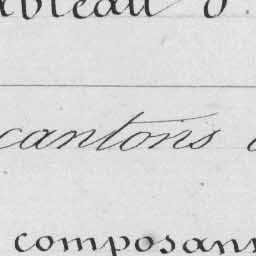 ableau d
cantons
composant